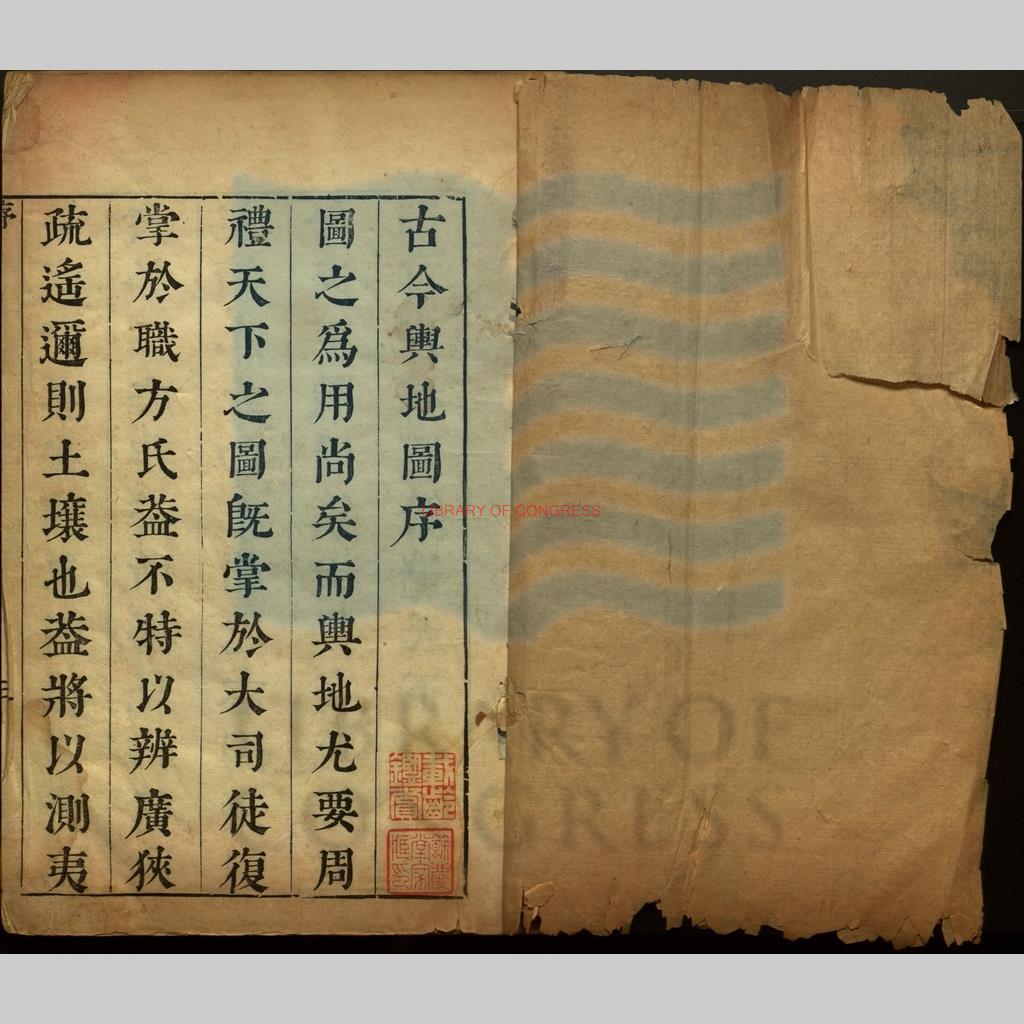 古今輿地圖序
圖之爲用尚矣而輿地尤要周
禮天下之圖旣掌於大司徒復
掌於職方氏葢不特以辨廣狹
疏遙邇則土壤也葢將以測夷
序
LIBRARY OF CONGRESS